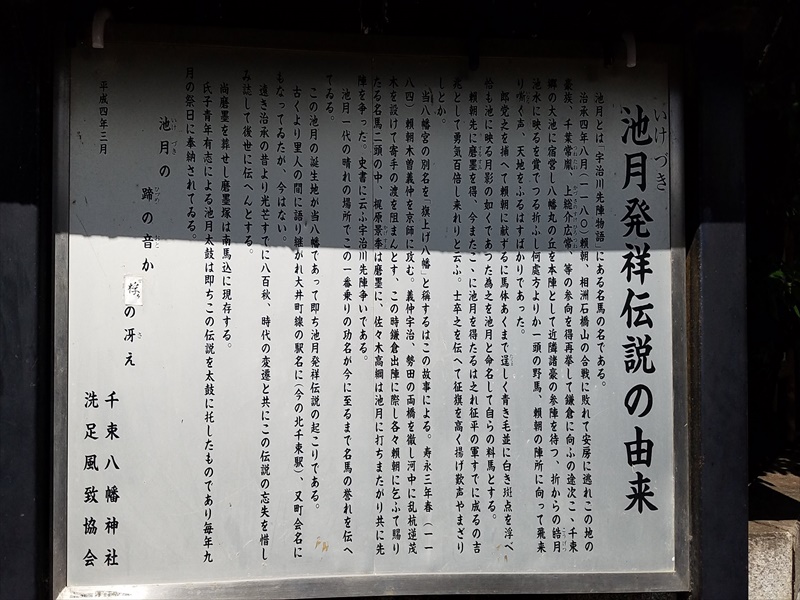 池月発祥伝説の由来
いけづき
池月とは「宇治川先陣物語」にある名馬の名である。
治承四年八月(一一八〇)頼朝、相洲石橋山の合戦に敗れて安房に逃れこの地の
豪族、千葉常胤、上総介広常、等の参向を得再挙して鎌倉に向ふの途次こゝ千束
郷の大池に宿営し八幡丸の丘を本陣として近隣諸豪の参陣を待つ、折からの皓月
池水に映るを賞でつる折ふし何処方よりか一頭の野馬、頼朝の陣所に向って飛来
り嘶く声、天地をふるはすばかりであった。
郎党之を捕へて頼朝に献ずるに馬体あくまで逞しく青き毛並に白き斑点を浮べ
恰も池に映る月影の如くであつた為之を池月と命名して自らの料馬とする。
頼朝先に磨墨を得、今またこゝに池月を得たるは之れ征平の軍すでに成るの吉
兆として勇気百倍し来れりと云ふ。士卒之を伝へて征旗を高く揚げ歓声やまざり
しとか。
当八幡宮の別名を「旗上げ八幡」と称するはこの故事による。寿永三年春(一一
八四)頼朝木曽義仲を京師に攻む。義仲宇治、勢田の両橋を徹し河中に乱杭逆茂
木を設けて寄手の渡を阻まんとす、この時鎌倉出陣に際し各々頼朝に乞ふて賜り
たる名馬二頭の中、梶原景季は磨墨に、佐々木高綱は池月に打ちまたがり共に先
陣を争った。史書に云ふ宇治川先陣争いである。
池月一代の晴れの場所でこの一番乗りの功名が今に至るまで名馬の誉れを伝へ
てゐる。
この池月の誕生地が当八幡であって即ち池月発祥伝説の起こりである。
古くより里人の間に語り継がれ大井町線の駅名に(今の北千束駅)、又町会名に
もなってゐたが、今はない。
遠き治承の昔より光芒すでに八百秋、時代の変遷と共にこの伝説の忘失を惜し
み誌して後世に伝へんとする。
尚磨墨を葬せし磨墨塚は南馬込に現存する。
氏子青年有志による池月太鼓は即ちこの伝説を太鼓に托したものであり毎年九
月の祭日に奉納されてゐる。
池月の
いけづき
蹄の音か
ひづめ おと
の冴え
さ
平成四年三月
千束八幡神社
洗足風致協会